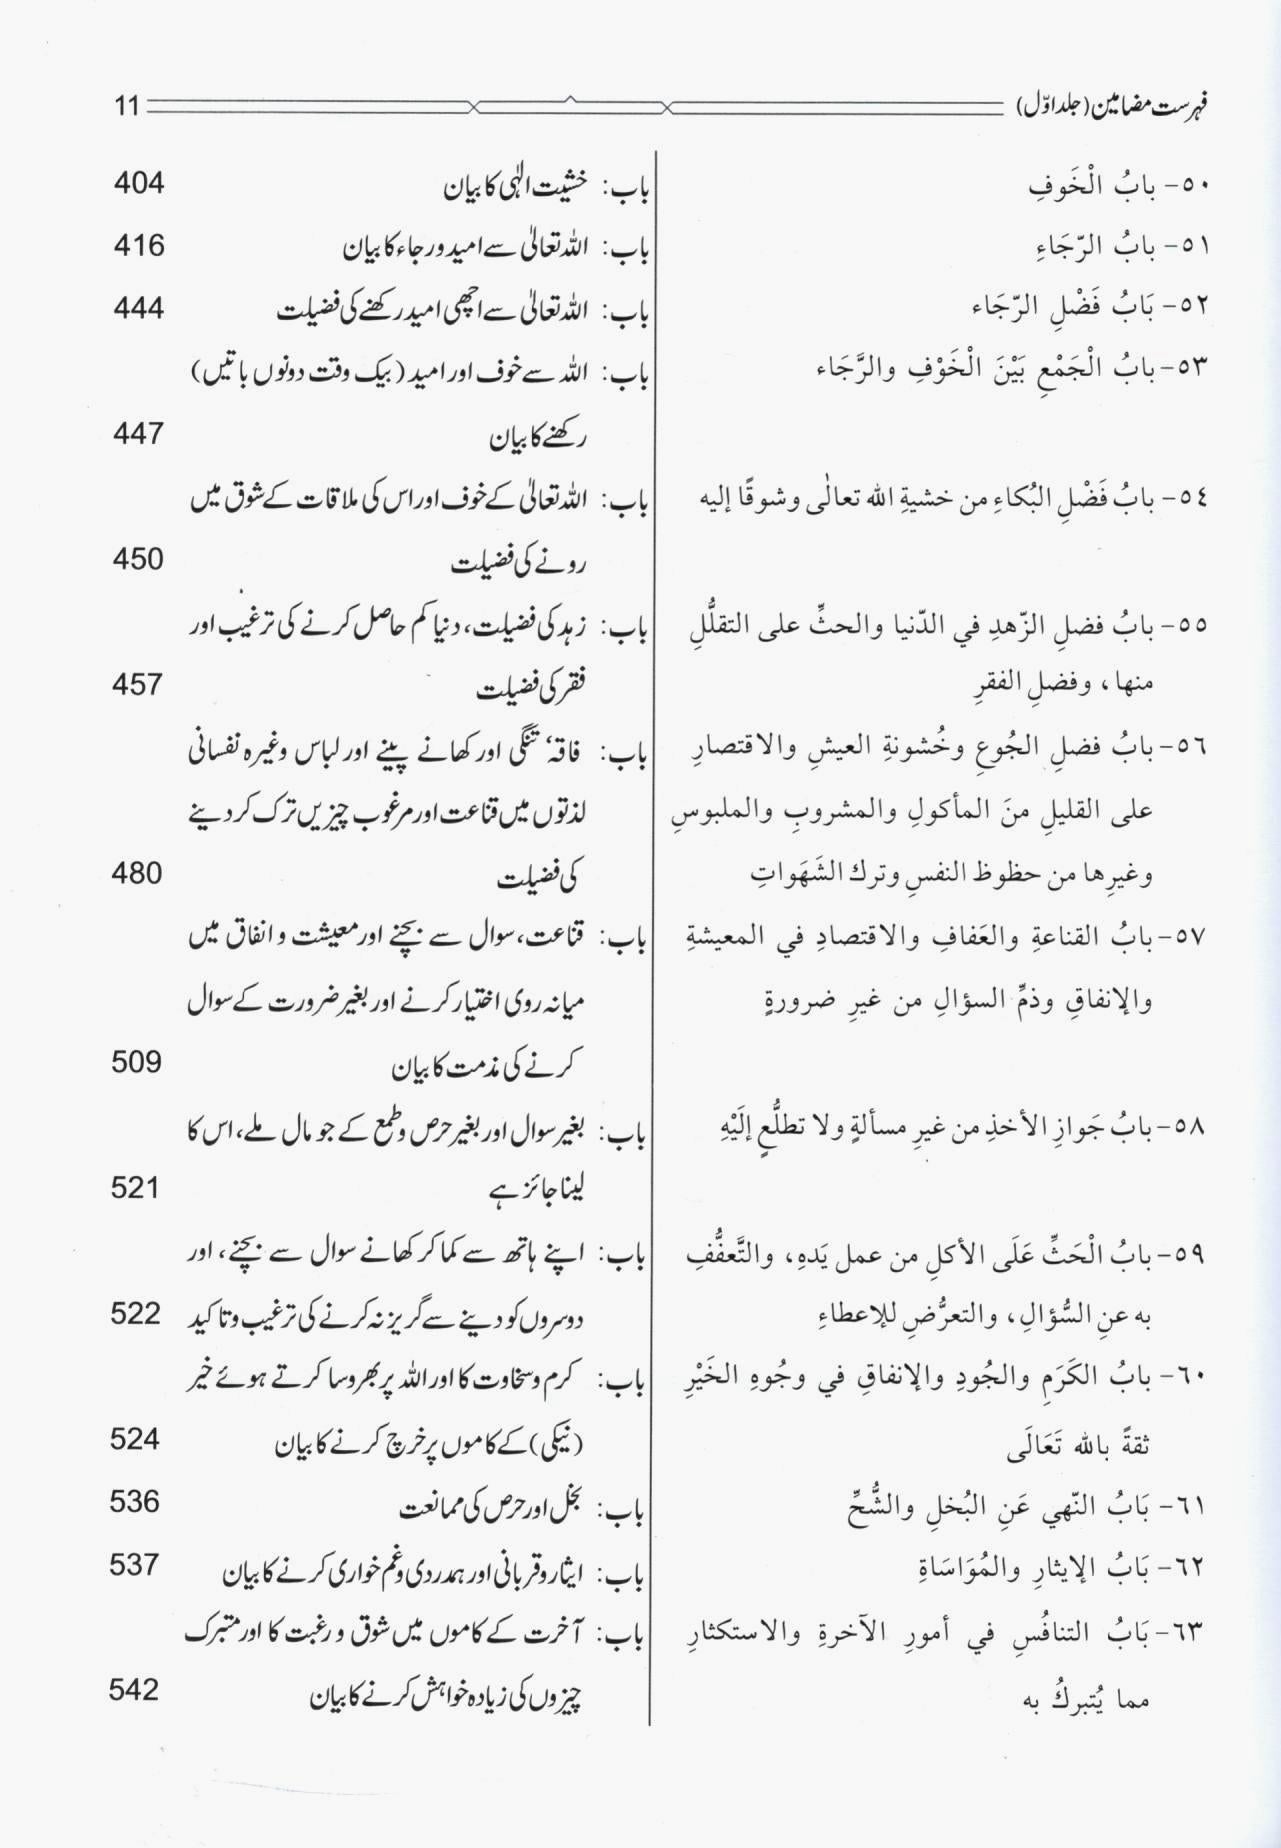 فہرست مضامین (جلد اوّل) 11
٥٠- بابُ الْخَوفِ باب: خشیت الٰہی کا بیان 404
٥١- بابُ الرّجَاءِ باب: اللہ تعالیٰ سے امید ورجاء کا بیان 416
٥٢- بَابُ فَضْلِ الرّجَاء باب: اللہ تعالیٰ سے اچھی امید رکھنے کی فضیلت 444
٥٣- بابُ الْجَمْعِ بَيْنَ الْخَوْفِ والرَّجَاء باب: اللہ سے خوف اور امید (بیک وقت دونوں باتیں)
رکھنے کا بیان 447
٥٤- بابُ فَضْلِ البُكاءِ من خشيةِ الله تعالٰى وشوقًا إليه باب: اللہ تعالیٰ کے خوف اور اس کی ملاقات کے شوق میں
رونے کی فضیلت 450
٥٥- بابُ فضلِ الزّهدِ في الدّنيا والحثِّ على التقلُّلِ باب: زہد کی فضیلت، دنیا کم حاصل کرنے کی ترغیب اور
منها، وفضلِ الفقرِ فقر کی فضیلت 457
٥٦- بابُ فضلِ الجُوعِ وخُشونةِ العيشِ والاقتصارِ باب: فاقہ، تنگی اور کھانے پینے اور لباس وغیرہ نفسانی
على القليلِ منَ المأكولِ والمشروبِ والملبوسِ لذتوں میں قناعت اور مرغوب چیزیں ترک کر دینے
وغيرِها من حظوظ النفسِ وترك الشَهَواتِ کی فضیلت 480
٥٧- بابُ القناعةِ والعَفافِ والاقتصادِ في المعيشةِ باب: قناعت، سوال سے بچنے اور معیشت و انفاق میں
والإنفاقِ وذمِّ السؤالِ من غيرِ ضرورةٍ میانہ روی اختیار کرنے اور بغیر ضرورت کے سوال
کرنے کی مذمت کا بیان 509
٥٨- بابُ جَوازِ الأخذِ من غيرِ مسألةٍ ولا تطلُّعٍ إلَيْهِ باب: بغیر سوال اور بغیر حرص وطمع کے جو مال ملے، اس کا
لینا جائز ہے 521
٥٩- بابُ الْحَثِّ عَلَى الأكلِ من عمل يَدهِ، والتَّعفُّفِ باب: اپنے ہاتھ سے کما کر کھانے سوال سے بچنے، اور
به عنِ السُّؤالِ، والتعرُّضِ للإعطاءِ دوسروں کو دینے سے گریز نہ کرنے کی ترغیب وتاکید 522
٦٠- بابُ الكَرَمِ والجُودِ والإنفاقِ في وجُوهِ الخَيْرِ باب: کرم وسخاوت کا اور اللہ پر بھروسا کرتے ہوئے خیر
ثقةً بالله تَعَالَى (نیکی) کے کاموں پر خرچ کرنے کا بیان 524
٦١- بَابُ النّهي عَنِ البُخلِ والشُّحِّ باب: بخل اور حرص کی ممانعت 536
٦٢- بَابُ الإيثارِ والمُوَاسَاةِ باب: ایثار وقربانی اور ہمدردی وغم خواری کرنے کا بیان 537
٦٣- بَابُ التنافُسِ في أمورِ الآخرةِ والاستكثارِ باب: آخرت کے کاموں میں شوق ورغبت کا اور متبرک
مما يُتبركُ به چیزوں کی زیادہ خواہش کرنے کا بیان 542